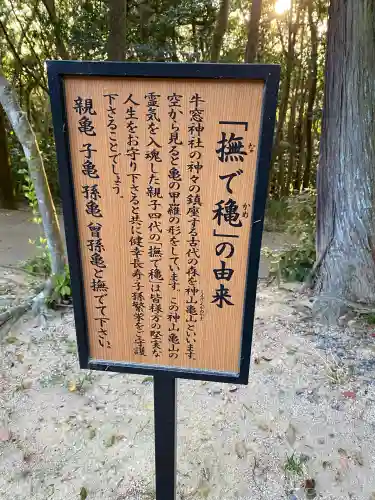 「撫で亀」の由来
牛窓神社の神々の鎮座する古代の森を神山亀山といいます。
空から見ると亀の甲羅の形をしています。この神山亀山の
霊気を入魂した親子四代の「撫で亀」は皆様方の堅実な
人生をお守り下さると共に健康長寿子孫繁栄をご守護
下さることでしょう。
親亀 子亀 孫亀 曾孫亀と撫でて下さい。